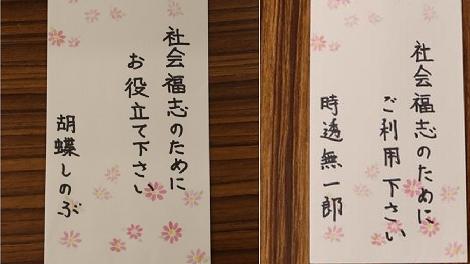 社会福志のために
お役立て下さい
胡蝶しのぶ
社会福志のために
ご利用下さい
時透無一郎